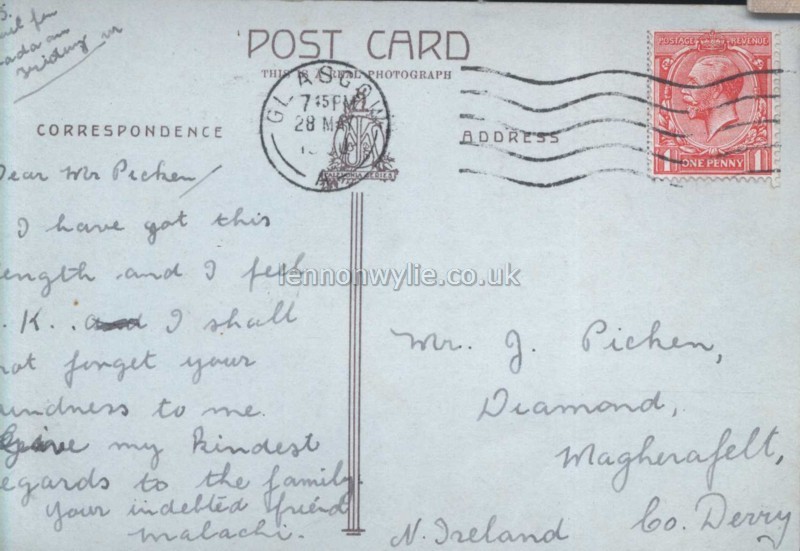 POST CARD
THIS IS A REAL PHOTOGRAPH
CORRESPONDENCE
ADDRESS
GLASGOW
7 45 PM
28 MA
POSTAGE REVENUE
1 ONE PENNY 1
ear Mr Picken
I have got this
ength and I feel
. K. and I shall
not forget your
kindness to me.
Give my kindest
egards to the family.
your indebted friend
Malachi.
Mr. J. Picken,
Diamond,
Magherafelt,
Co. Derry
N. Ireland
lennonwylie.co.uk